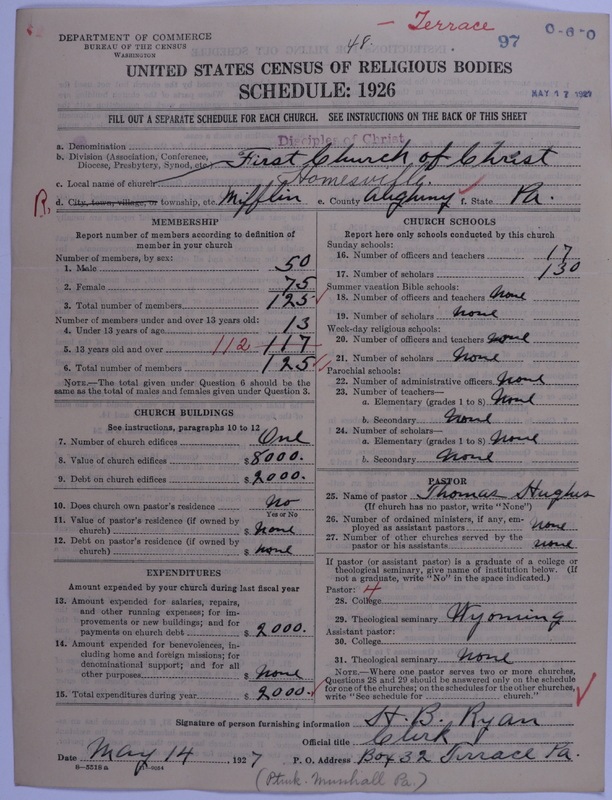 - Terrace
DEPARTMENT OF COMMERCE
BUREAU OF THE CENSUS
WASHINGTON
48.
97
0-6-0
UNITED STATES CENSUS OF RELIGIOUS BODIES
SCHEDULE: 1926
MAY 17 1927
FILL OUT A SEPARATE SCHEDULE FOR EACH CHURCH. SEE INSTRUCTIONS ON THE BACK OF THIS SHEET
a. Denomination Disciples of Christ
b. Division (Association, Conference, Diocese, Presbytery, Synod, etc.) First Church of Christ
c. Local name of church
R. d. City, town, village, or township, etc. Mifflin e. County Alegheny f. State Pa.
MEMBERSHIP
Report number of members according to definition of member in your church
Number of members, by sex:
1. Male 50
2. Female 75
3. Total number of members 125
Number of members under and over 13 years old:
4. Under 13 years of age 13
5. 13 years old and over 112 117
6. Total number of members 125
NOTE.—The total given under Question 6 should be the same as the total of males and females given under Question 3.
CHURCH BUILDINGS
See instructions, paragraphs 10 to 12
7. Number of church edifices One
8. Value of church edifices $8000.
9. Debt on church edifices $2000.
10. Does church own pastor's residence No
Yes or No
11. Value of pastor's residence (if owned by church) $ none
12. Debt on pastor's residence (if owned by church) $ none
EXPENDITURES
Amount expended by your church during last fiscal year
13. Amount expended for salaries, repairs, and other running expenses; for improvements or new buildings; and for payments on church debt $2000.
14. Amount expended for benevolences, including home and foreign missions; for denominational support; and for all other purposes $ None
15. Total expenditures during year $2000.
CHURCH SCHOOLS
Report here only schools conducted by this church
Sunday schools:
16. Number of officers and teachers 17
17. Number of scholars 130
Summer vacation Bible schools:
18. Number of officers and teachers None
19. Number of scholars None
Week-day religious schools:
20. Number of officers and teachers none
21. Number of scholars None
Parochial schools:
22. Number of administrative officers None
23. Number of teachers—
a. Elementary (grades 1 to 8) None
b. Secondary None
24. Number of scholars—
a. Elementary (grades 1 to 8) None
b. Secondary None
PASTOR
25. Name of pastor Thomas Hughes
(If church has no pastor, write "None")
26. Number of ordained ministers, if any, employed as assistant pastors none
27. Number of other churches served by the pastor or his assistants none
If pastor (or assistant pastor) is a graduate of a college or theological seminary, give name of institution below. (If not a graduate, write "No" in the space indicated.)
Pastor: 4
28. College
29. Theological seminary Wyoming
Assistant pastor:
30. College
31. Theological seminary None
NOTE.—Where one pastor serves two or more churches, Questions 28 and 29 should be answered only on the schedule for one of the churches; on the schedules for the other churches, write "See schedule for ________ church."
Signature of person furnishing information H. B. Ryan
Official title Clerk
Date May 14 1927 P. O. Address Box 32 Terrace Pa.
8—5218 a